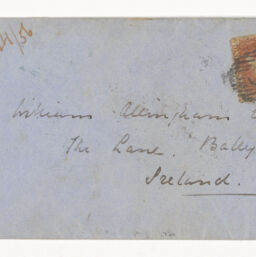 /56
William Allingham E
The Lane. Bally
Ireland.